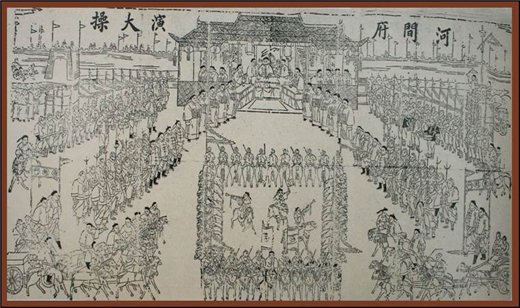 河間府演大操